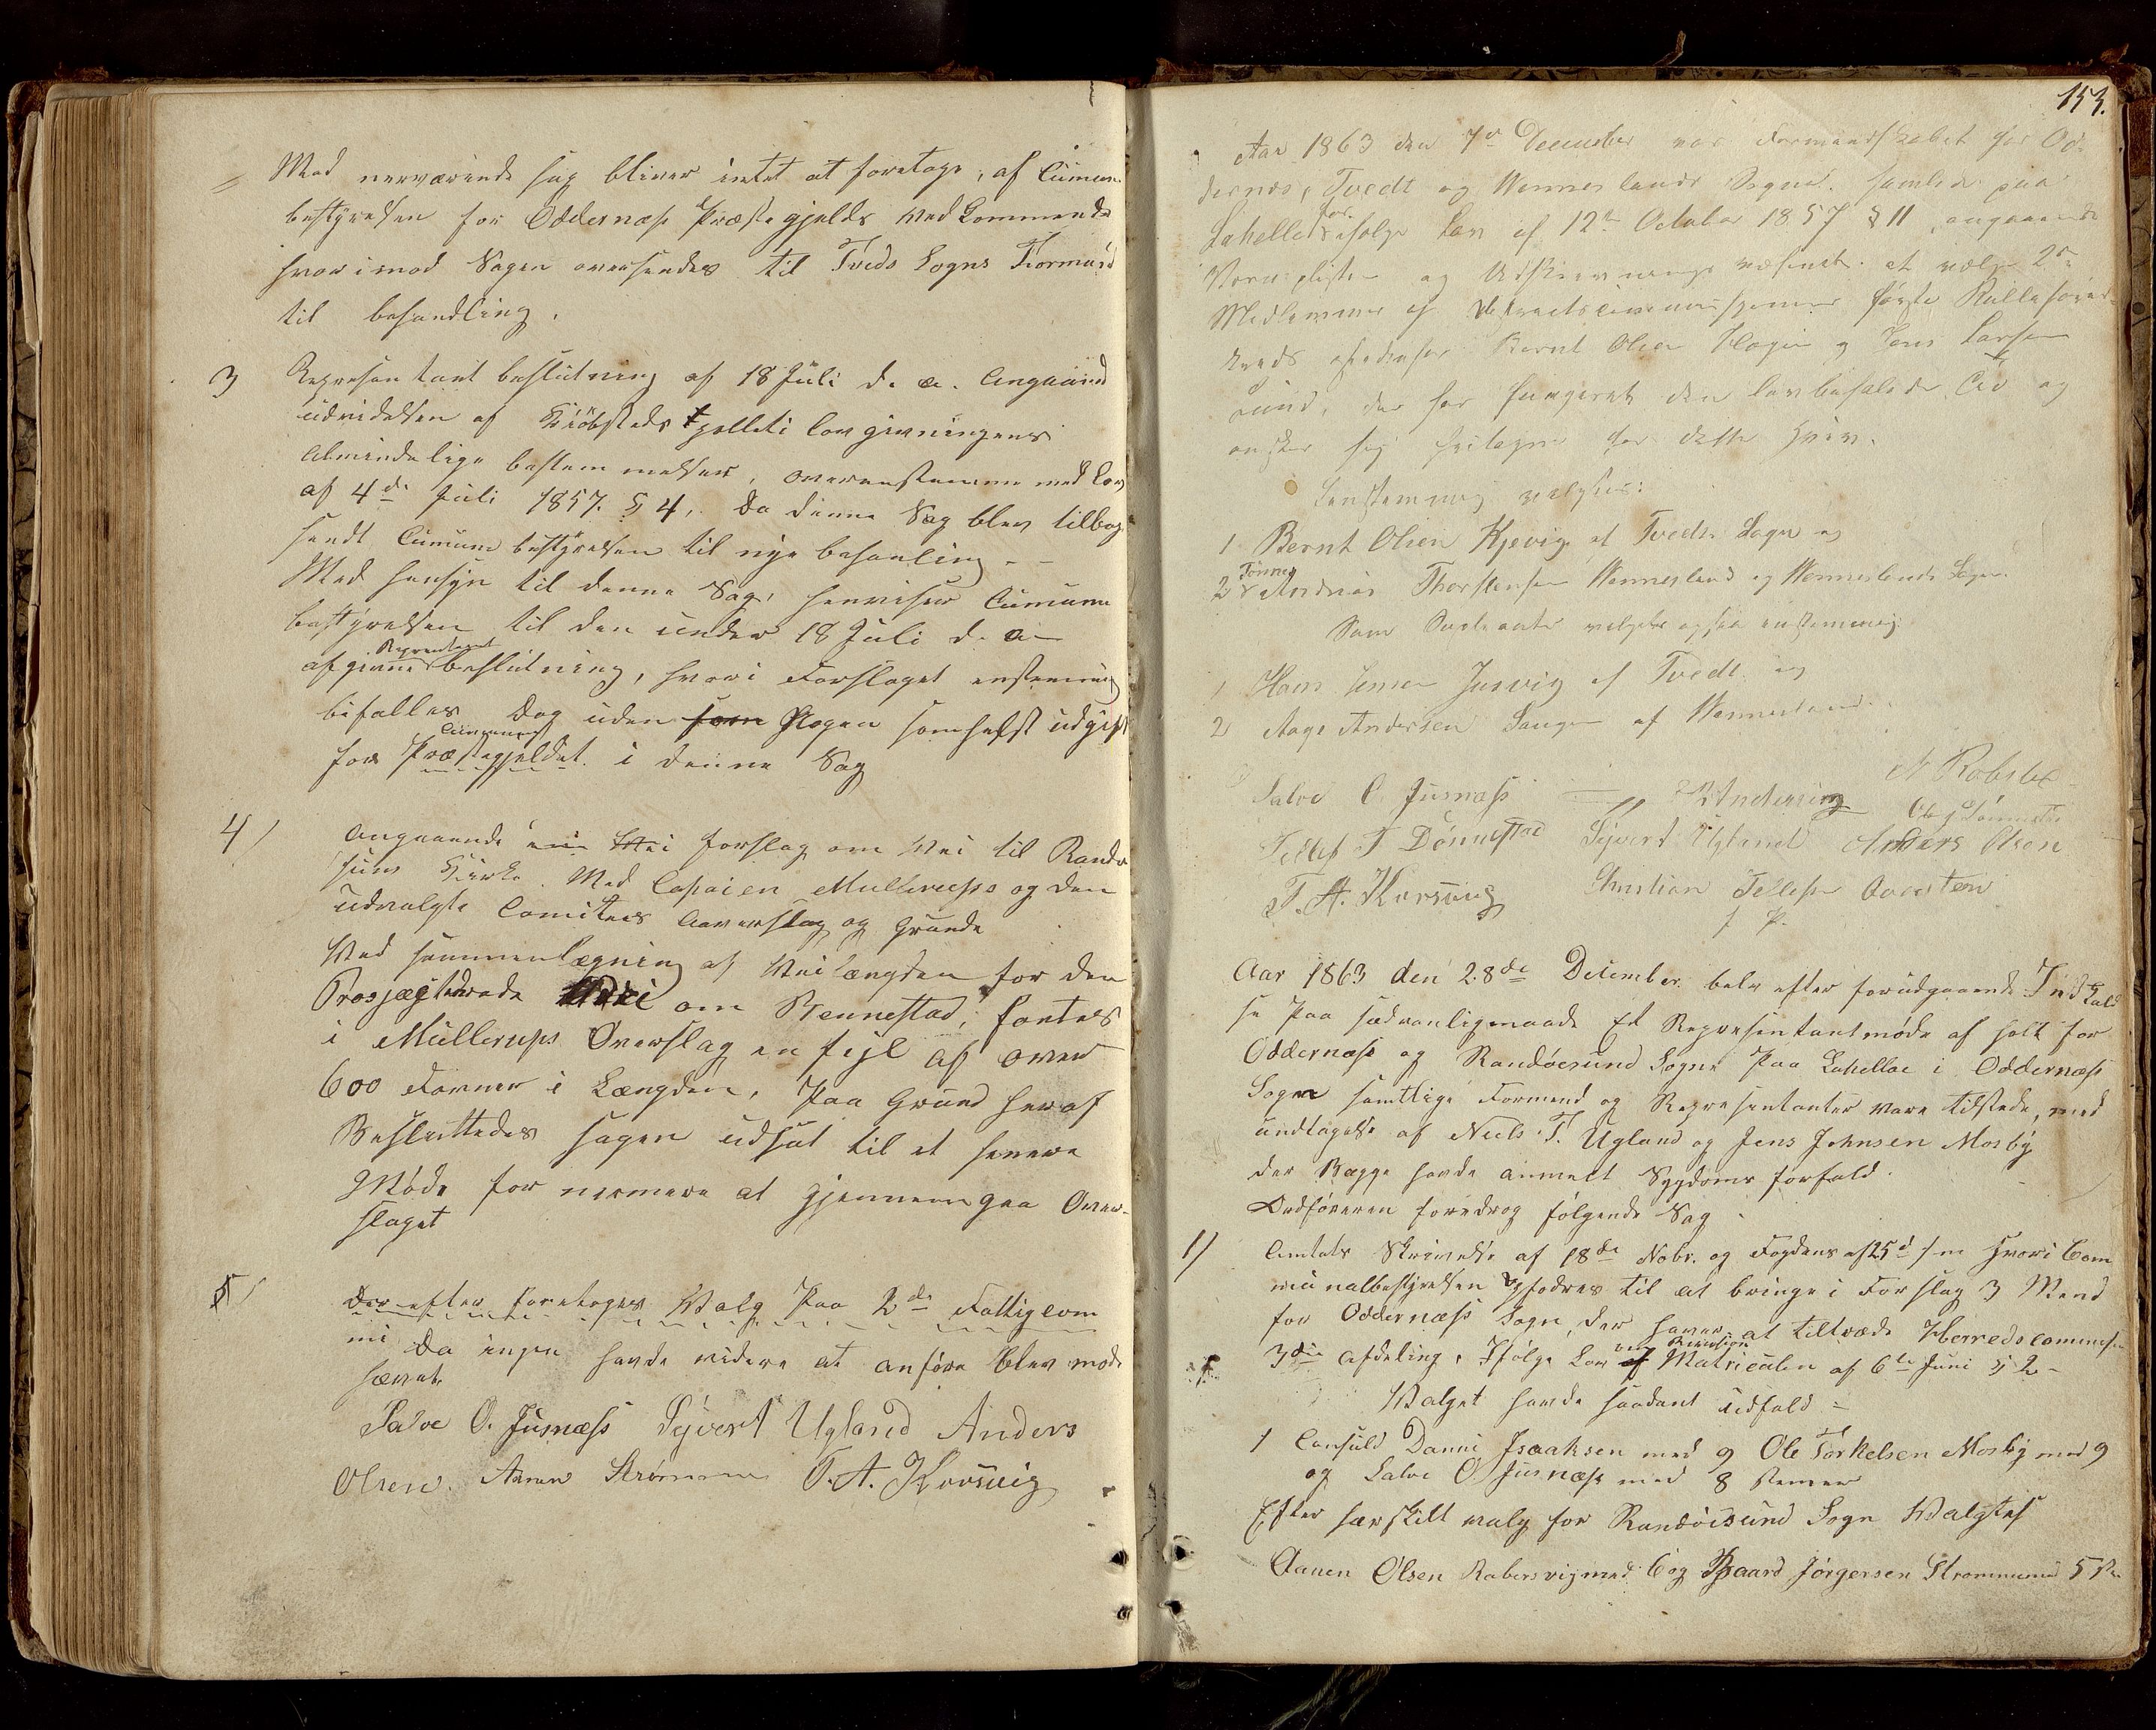 Med nerværende sag bliver intet at foretage, af Cumune
bestyrelsen for Oddernæs Præstegjelds Vedkommende
hvorimod Sagen oversendes til Tveds Sogns Formænd
til behandling.
3 Representant beslutning af 18 Juli d. a. Angaaend
udvidelsen af Kiöbsteds politi lovgivningens
Almindelige bestemmelser, overenstemme med Lov
af 4de Juli 1857. § 4, da denne Sag blev tilbag
sendt Cumune bestyrelsen til nye behanling --
Med hensyn til denne Sag, henviser Cumune
bestyrelsen til den under 18 Juli d. a
afgivne Representant beslutning, hvori Forslaget enstemmig
bifalles dog uden som Nogen somhelst udgift
for Præstegjeldet i denne Sag
4/ Angaaende forslag om Vei til Randø
sund Kirke. Med Capaien Mullerups og den
udvalgte Comitees Overslag og Grunde
Ved sammenlægning af Veilængden for den
Prosjægterede Vei om Rennestad, fantes
i Müllerups Overslag en fejl af over
600 Favner i Længden, Paa Grund heraf
Besluttedes sagen udsat til et senere
Möde for nermere at gjennemgaa Over-
slaget
5/ Derefter foretoges Valg Paa 2de Fattigcom
mi Da ingen havde videre at anföre blev mode
hævet
Salve O. Jusnæss Sejvert Ugland Anders
Olsen. T. A. Korsvig
153.
Aar 1863 den 7de December var Formandskabet for Od-
dernæs, Tvedt og Wenneslands Sogne samlede paa
Lahelle ifølge Lov af 12te October 1857 § 11, angaaende
Værnepligten og Udskrivningsvæsenet at vælge 2de
Medlemmer af første Rulleføre-
Bernt Olsen og Jens Larsen
sund, der har fungeret den lovbefalede Tid og
ønsker sig fritagne for dette Hverv.
Enstemmig valgtes:
1 Bernt Olsen Kjevig af Tvedt Sogn og
2 Tönnes Andreas Thorstensen Wennesland og Wenneslands Sogn.
Som valgtes ogsaa enstemmig
1 Hans Jensen Jusvig af Tvedt og
2 Aage Andersen Langen af Wennesland.
N Robsta
Salve O. Jusnæss
Tellef T Dönnestad Sejvert Ugland Anders Olsen
T. A. Korsvig Christian Tellefsen
Aar 1863 den 28de December belv efter forudgaaende Indkald
se Paa sædvanligmaade Et Representantmöde af holt for
Oddernæss og Randöesund Sogne Paa Lahelle i Oddernæss
Sogn samtlige Formend og Representanter vare tilstede, med
undtagelse af Niels T. Ugland og Jens Johnsen Mosby
der Begge havde anmelt Sygdoms forfald.
Ordföreren foredrog fölgende Sag
1/ Amtets Skrivelse af 18de Nobr. og Fogdens af 25d s m hvori Com
munalbestyrelsen opfodres til at bringe i Forslag 3 Mend
for Oddernæss Sogn, der haver at tiltræde Herredscommisn
3die Afdeling, Ifölge Lov om Revision af Matriculen af 6te Juni § 2-
Valget havde saadant udfald =
1 Consuld Danni Isaaksen med 9 Ole Torkelsen Mosby med 9
og Salve O. Jusnæss med 8 stemer
Efter særskilt valg for Randöesund Sogn Valgtes
Aanen Olsen Rabersvig med 6 og Baard Jörgensen Strommen 5 st